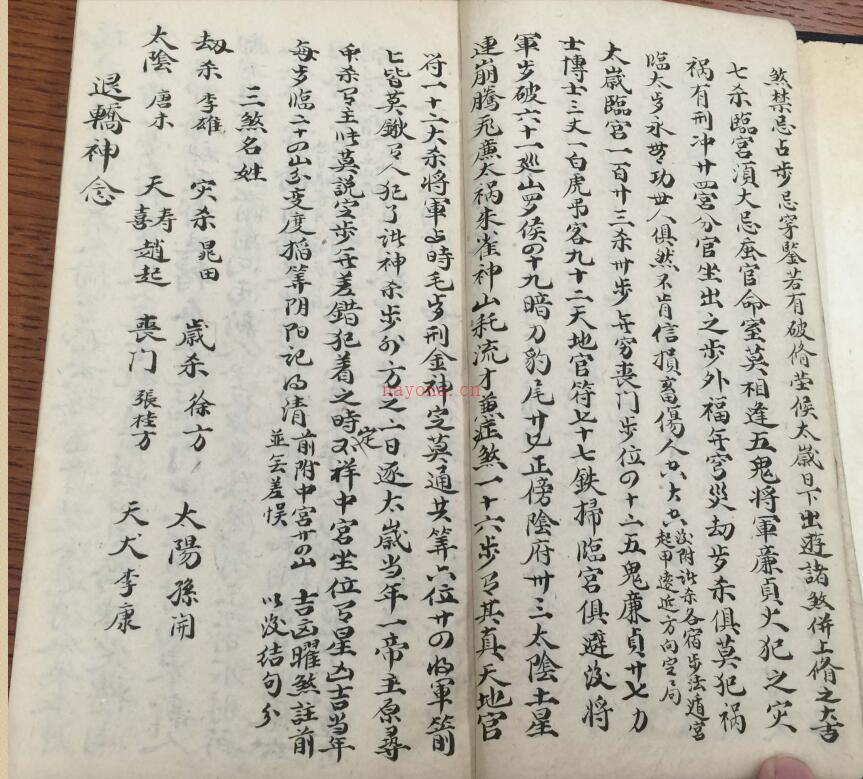 煞禁忌占步忌穿鑿若有破脩莹候太歲日下出遊諸煞併上脩之大吉
七杀臨宮湏大忌蚕官命室莫相逢五鬼將軍廉貞火犯之灾
祸有刑冲廿四宮分官坐出之步外福無穹災刼步杀俱莫犯祸
臨太岁永世功世人俱然不肯信損畜傷人六大六
没附訣杀各宿步法遁宮
起甲遠近方向定局
太歲臨宮一百廿三杀卅步無穷喪门步位の十二五鬼廉貞廿七力
士博士三丈一白虎弔客九十二天地官符七十七鉄掃臨宮俱避没將
軍步破六十一廵山罗侯の十九暗刀豹尾廿七正傍陰府卅三太陰土星
連崩騰死廉太祸朱雀神山耗流才煞一十六步其真天地官
符一十二大杀將軍占時毛步刑金神定莫通共筭六位廿の將軍箭
七皆莫鍬人犯了訣神杀步外方之一日逐太歲当年一帝主原尋
千杀主訣莫說定步無差錯犯着之時不祥中宮坐位星凶吉当年
定
每步臨二十の山分变度稻筭阴阳記的清
前附中宮廿の山
並無差悮
吉凶曜煞註前
以没结句分
三煞名姓
刼杀 李雄 灾杀 晁田 歲杀 徐方 太陽 孫開
太陰 唐木 天喜 壽趙起 喪门 張桂方 天犬 李康
退轎神念
nayona.cn